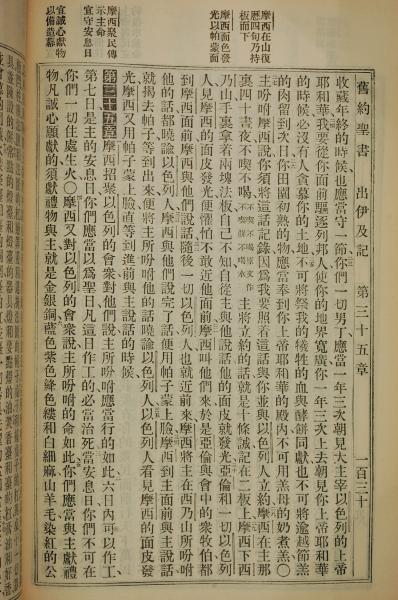 摩西在山復
歷四旬乃持
板而下
摩西面色發
光以帕蒙面
摩西聚民傳
示主命
宜守安息日
宜誠心獻物
以備造幕
舊約聖書 出伊及記 第三十五章 一百三十
收藏年終的時候也應當守一節你們一切男丁應當一年三次朝見大主宰以色列的上帝
耶和華我要從你面前驅逐列邦人使你的地界寬廣你一年三次上去朝見你上帝耶和華
的時候必沒有人貪慕你的土地不可將祭我的犧牲的血與酵餅同獻也不可將逾越節羔
的肉留到次日你田園初熟的物應當奉到你上帝耶和華的殿內不可用羔母的奶煮羔〇
主吩咐摩西說你須將這話記錄因爲我要照着這話與你並與以色列人立約摩西在主那
裏四十晝夜不喫不喝主將立約的話就是十條誡記在二板上摩西下西
乃山手裏拿着兩塊法板自己不知自從主與他說話他的面皮就發光亞倫和一切以色列
人見摩西的面皮發光便懼怕不敢近他面前摩西叫他們來於是亞倫與會中的衆牧伯都
到摩西面前摩西與他們說話隨後一切以色列人也就近前來摩西將主在西乃山所吩咐
他的話都曉諭以色列人摩西與他們說完了話便用帕子蒙上臉摩西到主面前與主說話
就揭去帕子等到出來便將主所吩咐他的話曉諭以色列人以色列人看見摩西的面皮發
光摩西又用帕子蒙上臉直等到進前與主說話的時候
第三十五章 摩西招聚以色列的會衆對他們說主所吩咐應當行的如此六日內可以作工
第七日是主的安息日你們應當以爲聖日凡這日作工的必當治死當安息日你們不可在
你們一切住處生火〇摩西又對以色列的會衆說主所吩咐的命如此你們應當與主獻禮
物凡誠心願獻的須獻禮物與主就是金銀銅藍色紫色絳色縷和白細麻山羊毛染紅的公